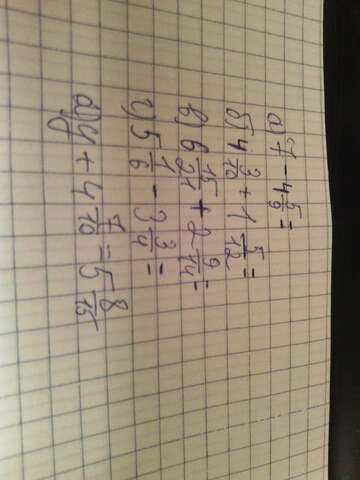 а) 7 - 4 5/9 =
б) 4 3/10 + 1 5/12 =
в) 6 15/21 + 2 9/14 =
г) 5 1/6 - 3 3/4 =
д) y + 4 7/10 = 5 8/15